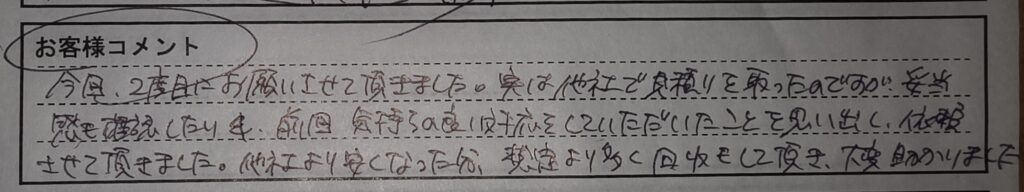 お客様コメント
今回、2度目にお願いさせて頂きました。実は他社で見積りを取ったのですが、妥当
感を確認したりも、前回気持ちの良い対応をしていただいたことを思い出し、依頼
させて頂きました。他社より安くなった分、想定より多く回収をして頂き、大変助かりました